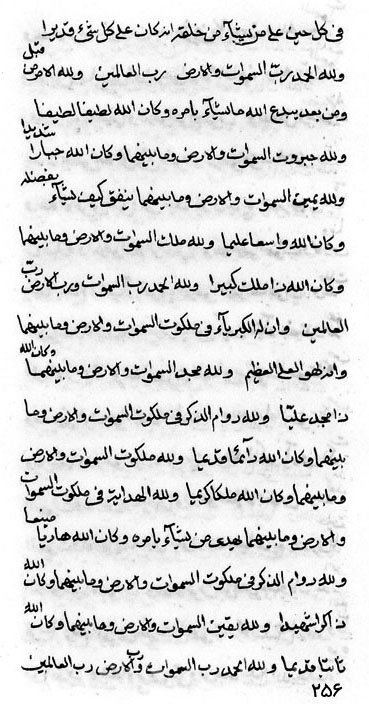 فی کل حین علی من یشآء من خلقه انه کان علی کل شیء قدیرا
ولله الحمد رب السموات والارض رب العالمین ولله الامر من قبل
ومن بعد یبدع الله ما یشآء بامره وکان الله لطیفا لطیفا
ولله جبروت السموات والارض وما بینهما وکان الله جبارا شدیدا
ولله یمین السموات والارض وما بینهما ینفق کیف یشآء بفضله
وکان الله واسعا علیما ولله ملک السموات والارض وما بینهما
وکان الله ذا ملک کبیرا ولله الحمد رب السموات ورب الارض رب
العالمین وان له الکبریآء فی ملکوت السموات والارض وما بینهما
وانه لهو العلی العظیم ولله مجد السموات والارض وما بینهما وکان الله
ذا مجد علیا ولله دوام الذکر فی ملکوت السموات والارض وما
بینهما وکان الله دآئما قدیما ولله ملکوت السموات والارض
وما بینهما وکان الله ملکا کریما ولله الهدایة فی ملکوت السموات
والارض وما بینهما یهدی من یشآء بامره وکان الله هادیا مبینا
ولله دوام الذکر فی ملکوت السموات والارض وما بینهما وکان الله
ذاکرا شهیدا ولله یقین السموات والارض وما بینهما وکان الله
قدیما ولله الحمد رب السموات والارض رب العالمین
۲۵۶